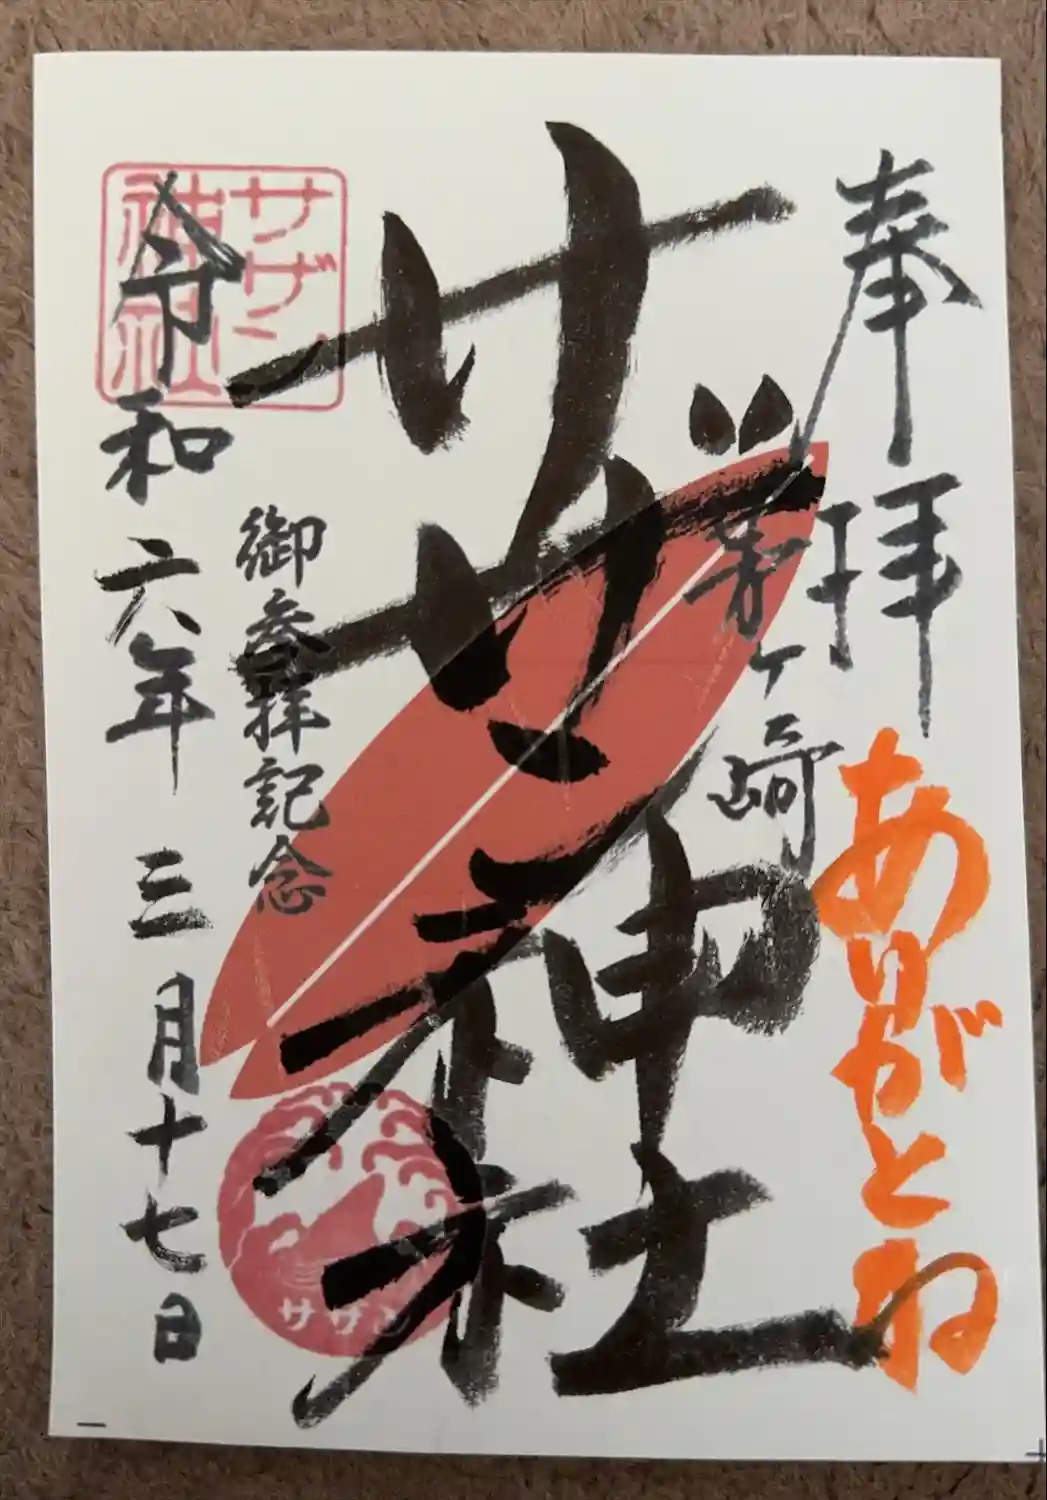 奉拝
ありがとね
茅ヶ崎
サザン神社
御参拝記念
令和六年三月十七日
サザン
神社
サザン